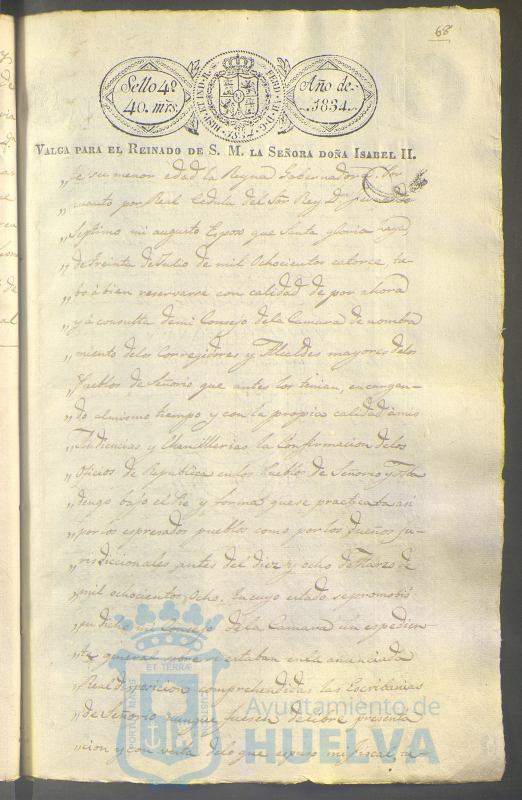 68
Sello 4º
40. mrs.
HISP. ET IND. R. FERD. VII D. G. 1834
Año de
1834.
VALGA PARA EL REINADO DE S. M. LA SEÑORA DOÑA ISABEL II.
„ de su menor edad la Reyna Gobernadora. Por
cuanto por Real Cedula del Sor Rey Dn
„ Septimo mi augusto Esposo que Santa gloria haya,
„ de treinta de Julio de mil Ochocientos catorce, tu-
„ bo á bien reservarse con calidad de por ahora
„ y á consulta de mi Consejo de la Camara de nombra
„ miento delos Corregidores y Alcaldes mayores delos
„ Pueblos de Señorio que antes los tenian, encargan-
„ do al mismo tiempo y con la propia calidad á mis
„ Audiencias y Chancillerias la Confirmacion delos
„ Oficios de Republica en los Pueblos de Señorio y Aba
„ dengo bajo el pie y forma que se practicaba asi
„ por los espresados pueblos como por los dueños ju-
„ risdiccionales antes del diez y ocho de Marzo de
„ mil ochocientos Ocho. En cuyo estado se promobió
en dicho mi Consejo de la Camara un espedien-
„ te general sobre si estaban en la anunciada
„ Real disposicion comprehendidas las Escribanias
„ de Señorio aunque fuesen de libre presenta
„ cion y con vista delo que espuso mi Fiscal, en-
PORTUS MARIS ET TERRÆ CUSTODIA
Ayuntamiento de
HUELVA